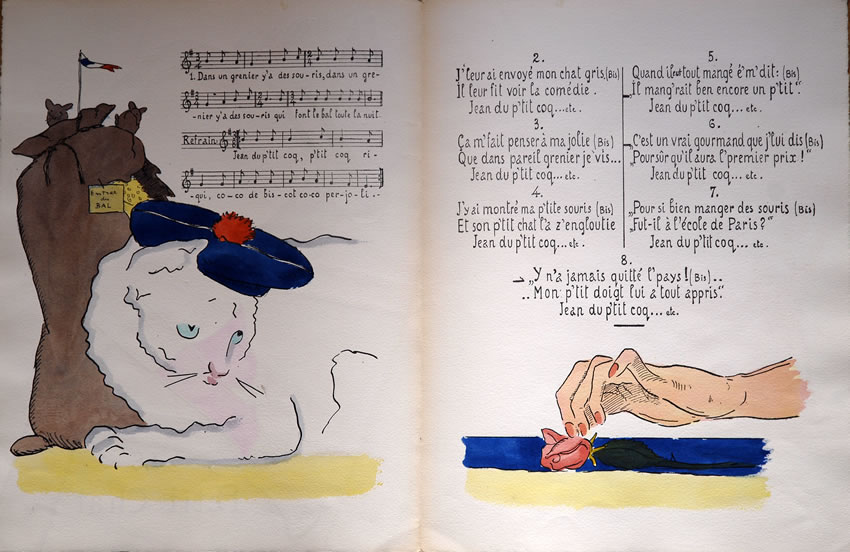 1. Dans un grenier y'a des sou-ris, dans un gre-
-nier y'a des souris qui font le bal toute la nuit
Refrain:
Jean du p'tit coq, p'tit coq ri-
-qui, co-co de bis-cot co-co per-jo-li-
Entrée
du
BAL
2.
J'leur ai envoyé mon chat gris, (Bis)
Il leur fit voir la comédie.
Jean du p'tit coq... etc.
3.
Ça m'fait penser à ma jolie (Bis)
Que dans pareil grenier je vis...
Jean du p'tit coq... etc.
4.
J'y ai montré ma p'tite souris (Bis)
Et son p'tit chat l'a z'engloutie
Jean du p'tit coq... etc.
5.
Quand il eut tout mangé é'm'dit: (Bis)
„Il mang'rait ben encore un p'tit".
Jean du p'tit coq... etc.
6.
„C'est un vrai gourmand que j'lui dis (Bis)
„Pour sûr qu'il aura l'premier prix!"
Jean du p'tit coq... etc.
7.
„Pour si bien manger des souris (Bis)
„Fut-il à l'école de Paris?"
Jean du p'tit coq... etc.
8.
— „Y n'a jamais quitté l'pays! (Bis)..
..Mon p'tit doigt lui a tout appris".
Jean du p'tit coq... etc.